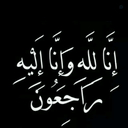 إنَّا لِلَّهِ وَإِنَّا إِلَيْهِ
رَاجِعُونَ